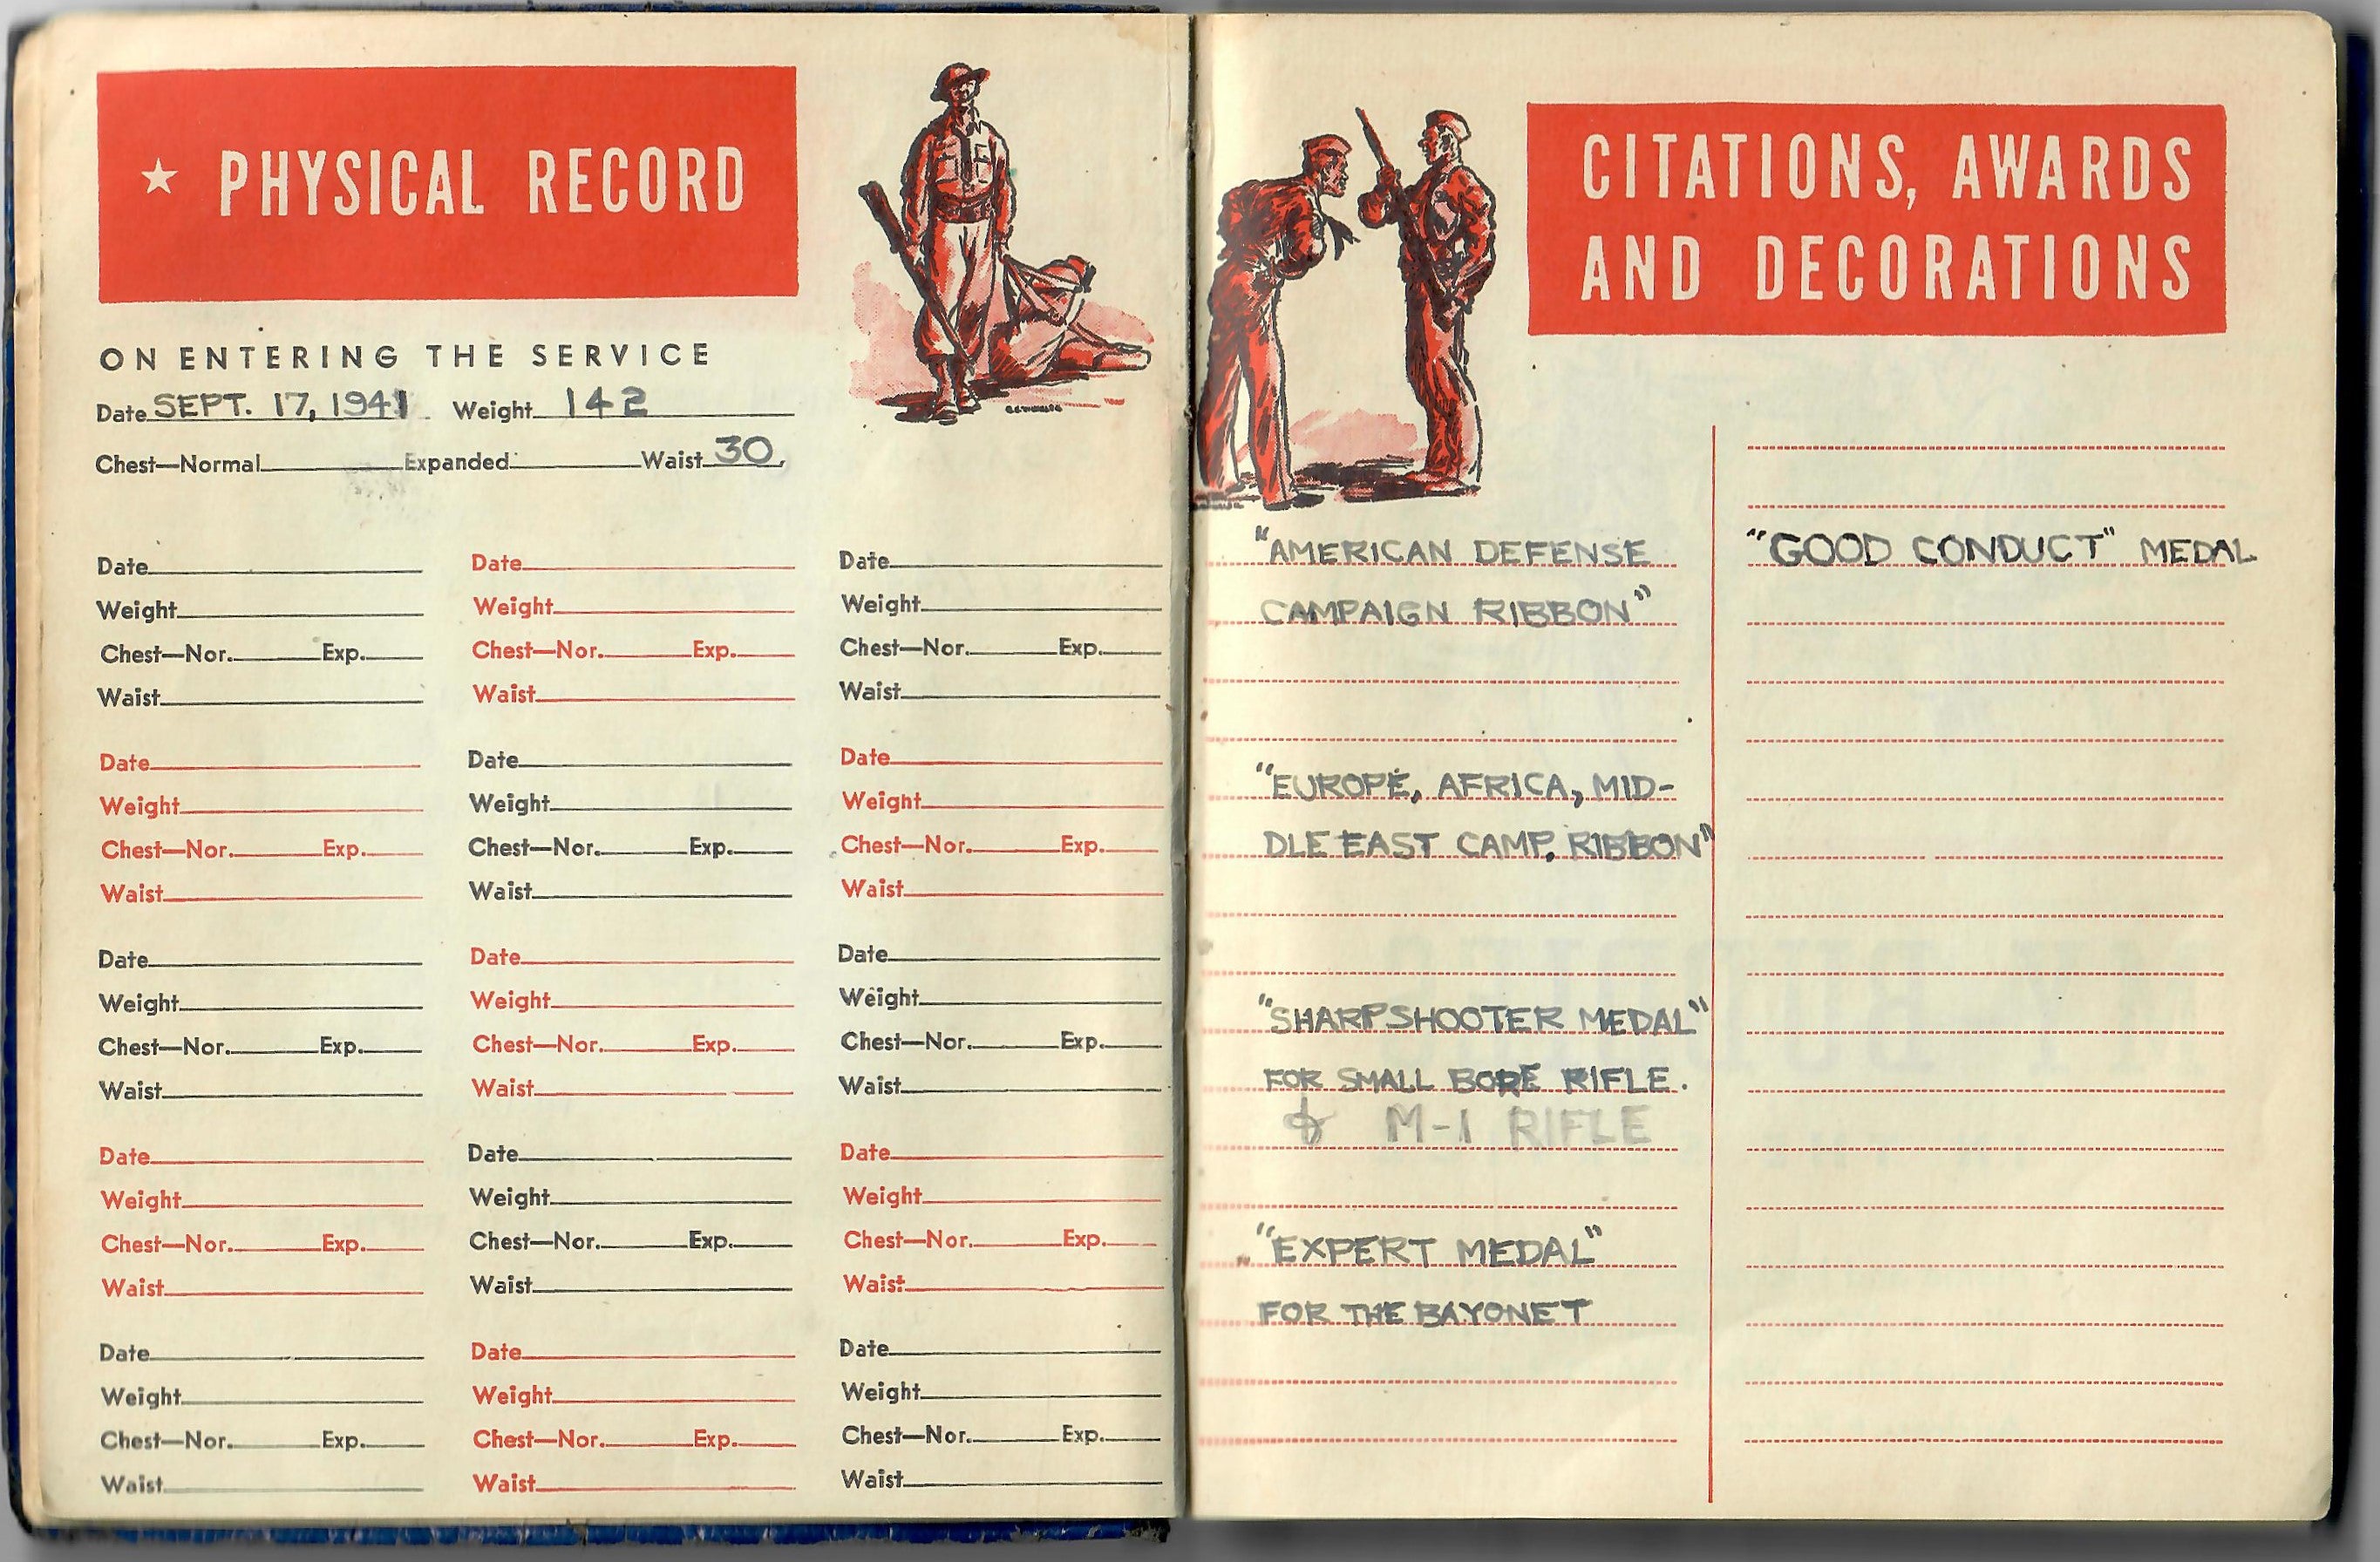 ★ PHYSICAL RECORD
ON ENTERING THE SERVICE
Date SEPT. 17, 1941 Weight 142
Chest—Normal Expanded Waist 30
Date Date Date
Weight Weight Weight
Chest—Nor. Exp. Chest—Nor. Exp. Chest—Nor. Exp.
Waist Waist Waist
Date Date Date
Weight Weight Weight
Chest—Nor. Exp. Chest—Nor. Exp. Chest—Nor. Exp.
Waist Waist Waist
Date Date Date
Weight Weight Weight
Chest—Nor. Exp. Chest—Nor. Exp. Chest—Nor. Exp.
Waist Waist Waist
Date Date Date
Weight Weight Weight
Chest—Nor. Exp. Chest—Nor. Exp. Chest—Nor. Exp.
Waist Waist Waist
Date Date Date
Weight Weight Weight
Chest—Nor. Exp. Chest—Nor. Exp. Chest—Nor. Exp.
Waist Waist Waist
CITATIONS, AWARDS
AND DECORATIONS
"AMERICAN DEFENSE
CAMPAIGN RIBBON"
"EUROPE, AFRICA, MID-
DLE EAST CAMP. RIBBON"
"SHARPSHOOTER MEDAL"
FOR SMALL BORE RIFLE.
& M-1 RIFLE
"EXPERT MEDAL"
FOR THE BAYONET
"GOOD CONDUCT" MEDAL